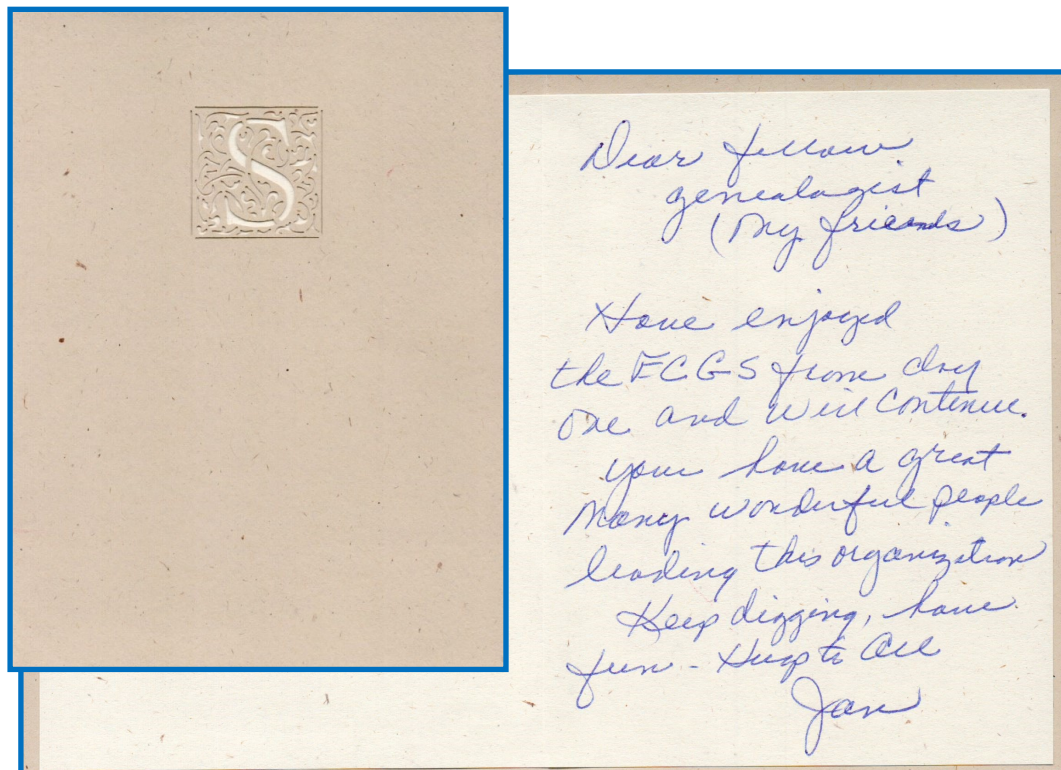 S
Dear fellow
genealogist
(My friends)
Have enjoyed
the FCGS from day
one and will continue.
your have a great
Many wonderful people
leading this organization
Keep digging, have
fun - Hugs to All
Jan